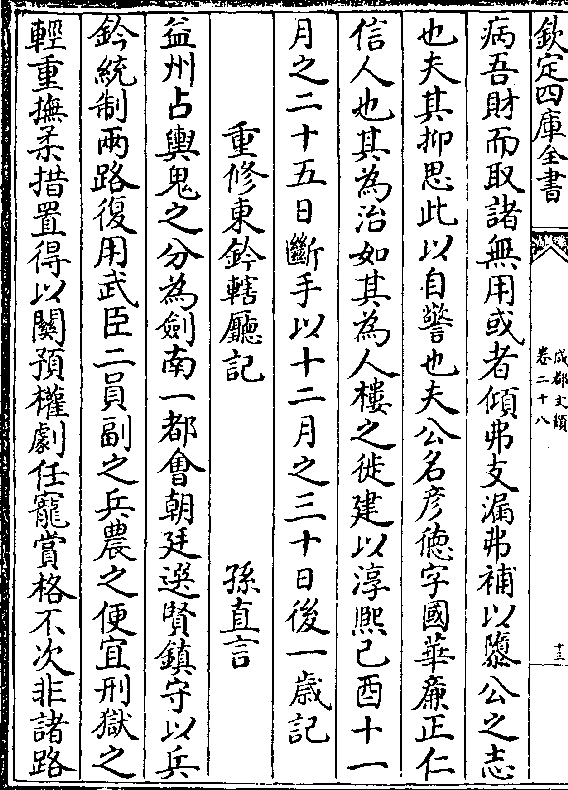 欽定四庫全書
成都文類
卷二十八
十三
病吾財而取諸無用或者傾弗支漏弗補以隳公之志
也夫其抑思此以自警也夫公名彦德字國華廉正仁
信人也其為治如其為人樓之徙建以淳熙己酉十一
月之二十五日斷手以十二月之三十日後一歳記
重修東鈐轄廳記
孫直言
益州占輿鬼之分為劍南一都會朝廷選賢鎮守以兵
鈐統制兩路復用武臣二員副之兵農之便宜刑獄之
輕重撫柔措置得以關預權劇任寵賞格不次非諸路